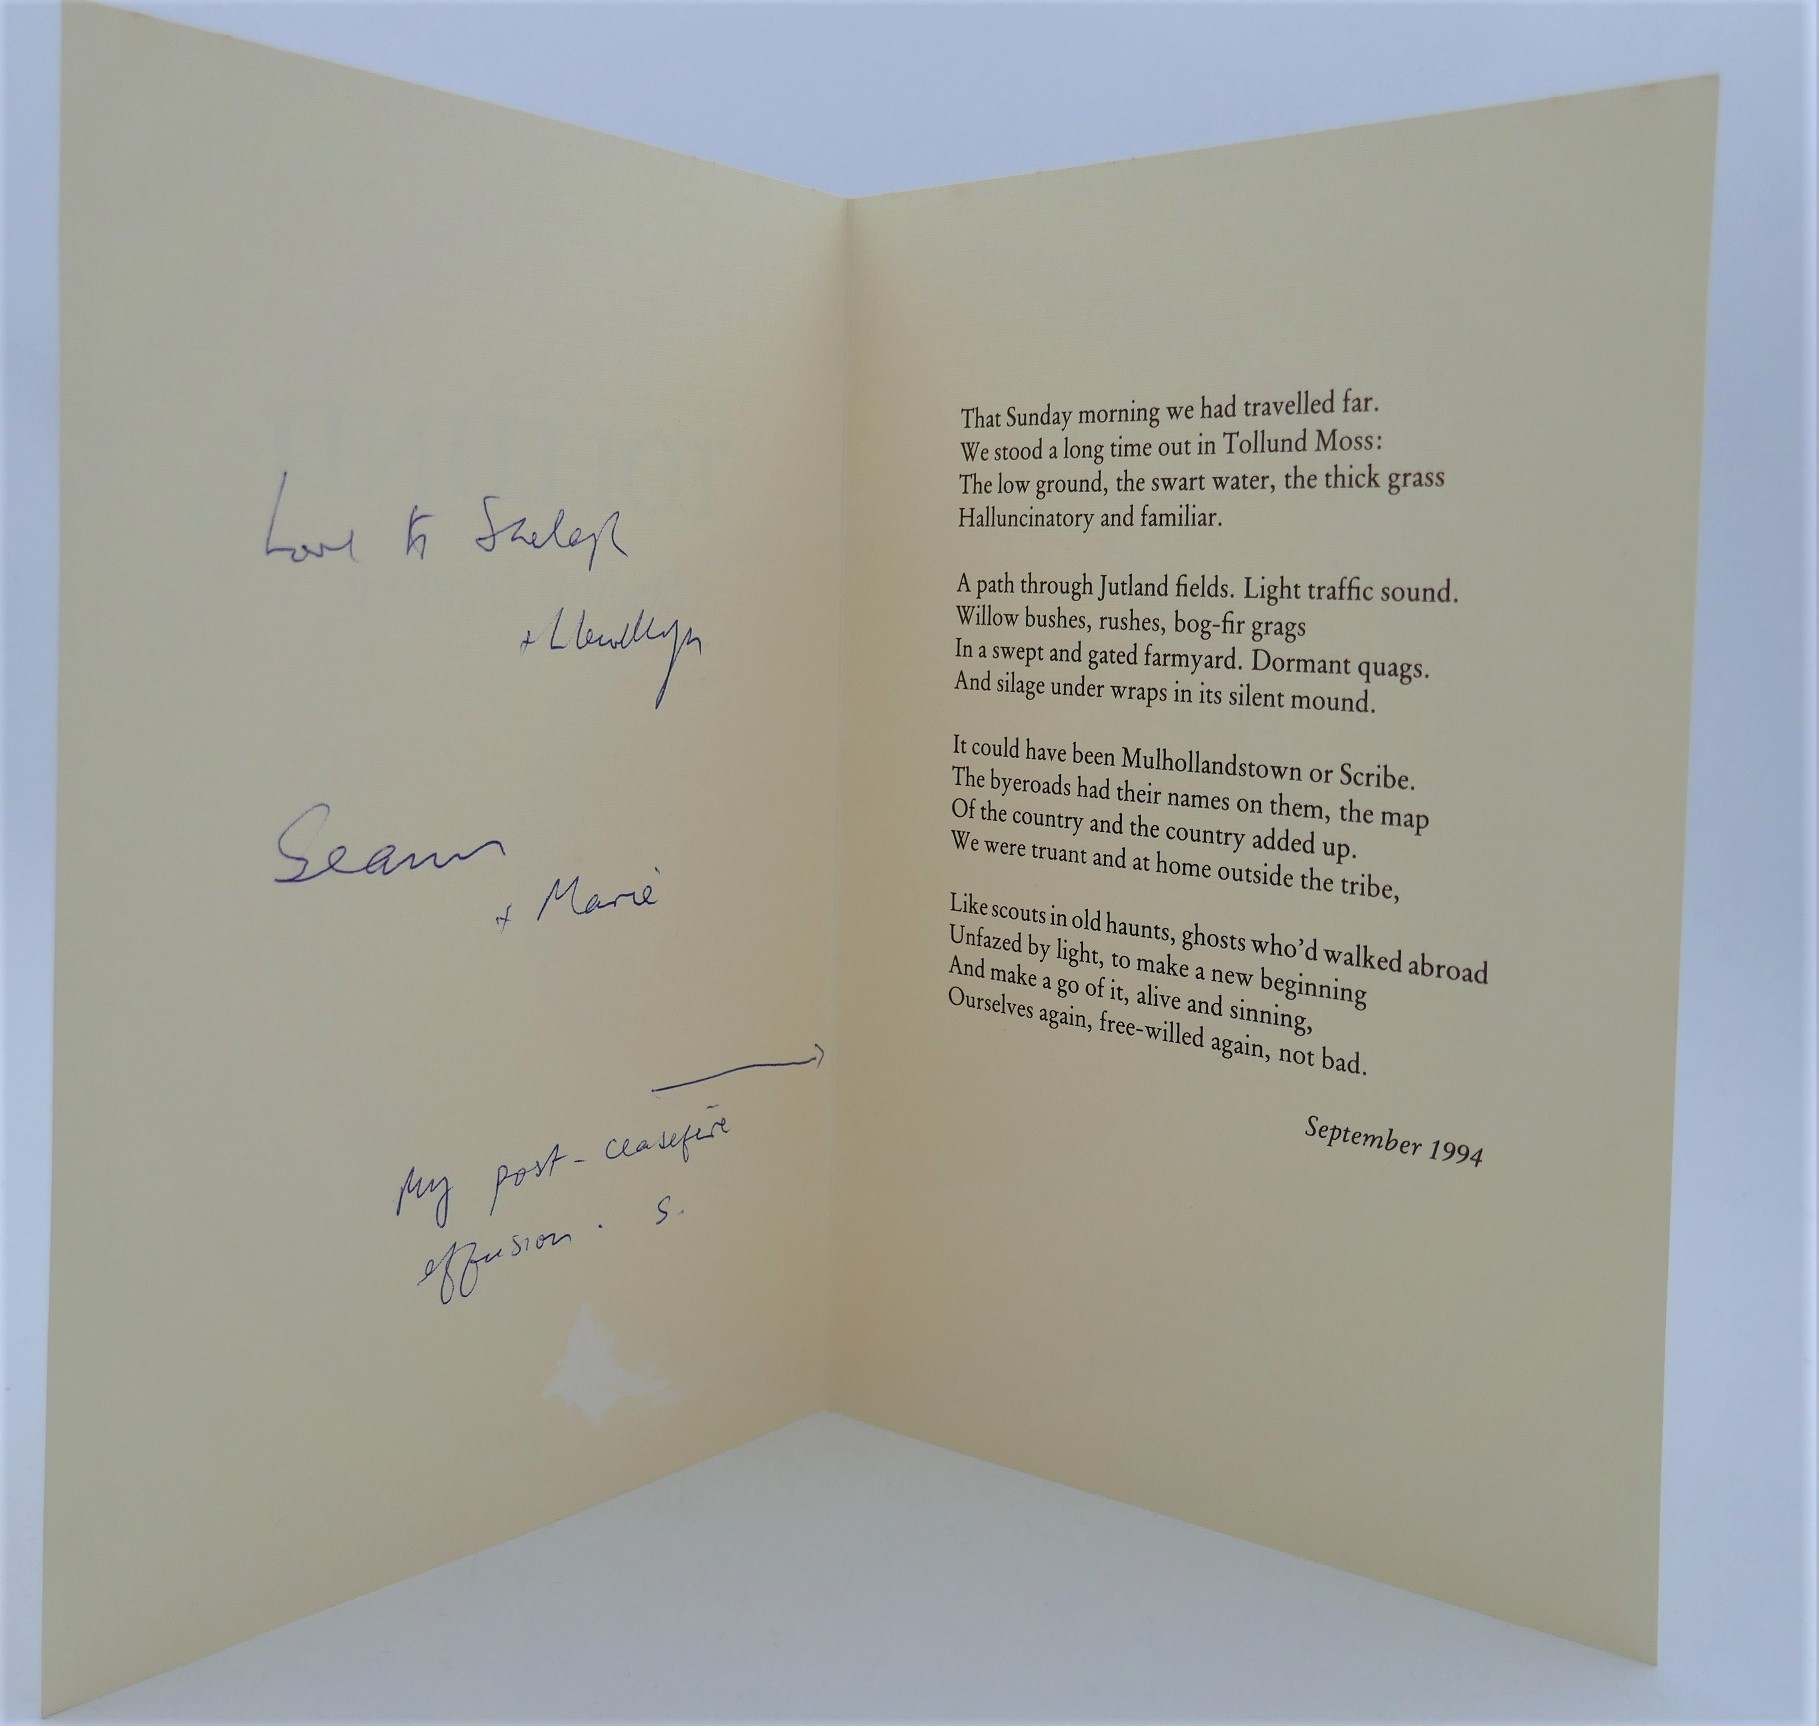 Love to Shelagh
+ Llewellyn
Seamus
+ Marie
My post-ceasefire
effusion. S.
That Sunday morning we had travelled far.
We stood a long time out in Tollund Moss:
The low ground, the swart water, the thick grass
Halluncinatory and familiar.
A path through Jutland fields. Light traffic sound.
Willow bushes, rushes, bog-fir grags
In a swept and gated farmyard. Dormant quags.
And silage under wraps in its silent mound.
It could have been Mulhollandstown or Scribe.
The byeroads had their names on them, the map
Of the country and the country added up.
We were truant and at home outside the tribe,
Like scouts in old haunts, ghosts who'd walked abroad
Unfazed by light, to make a new beginning
And make a go of it, alive and sinning,
Ourselves again, free-willed again, not bad.
September 1994